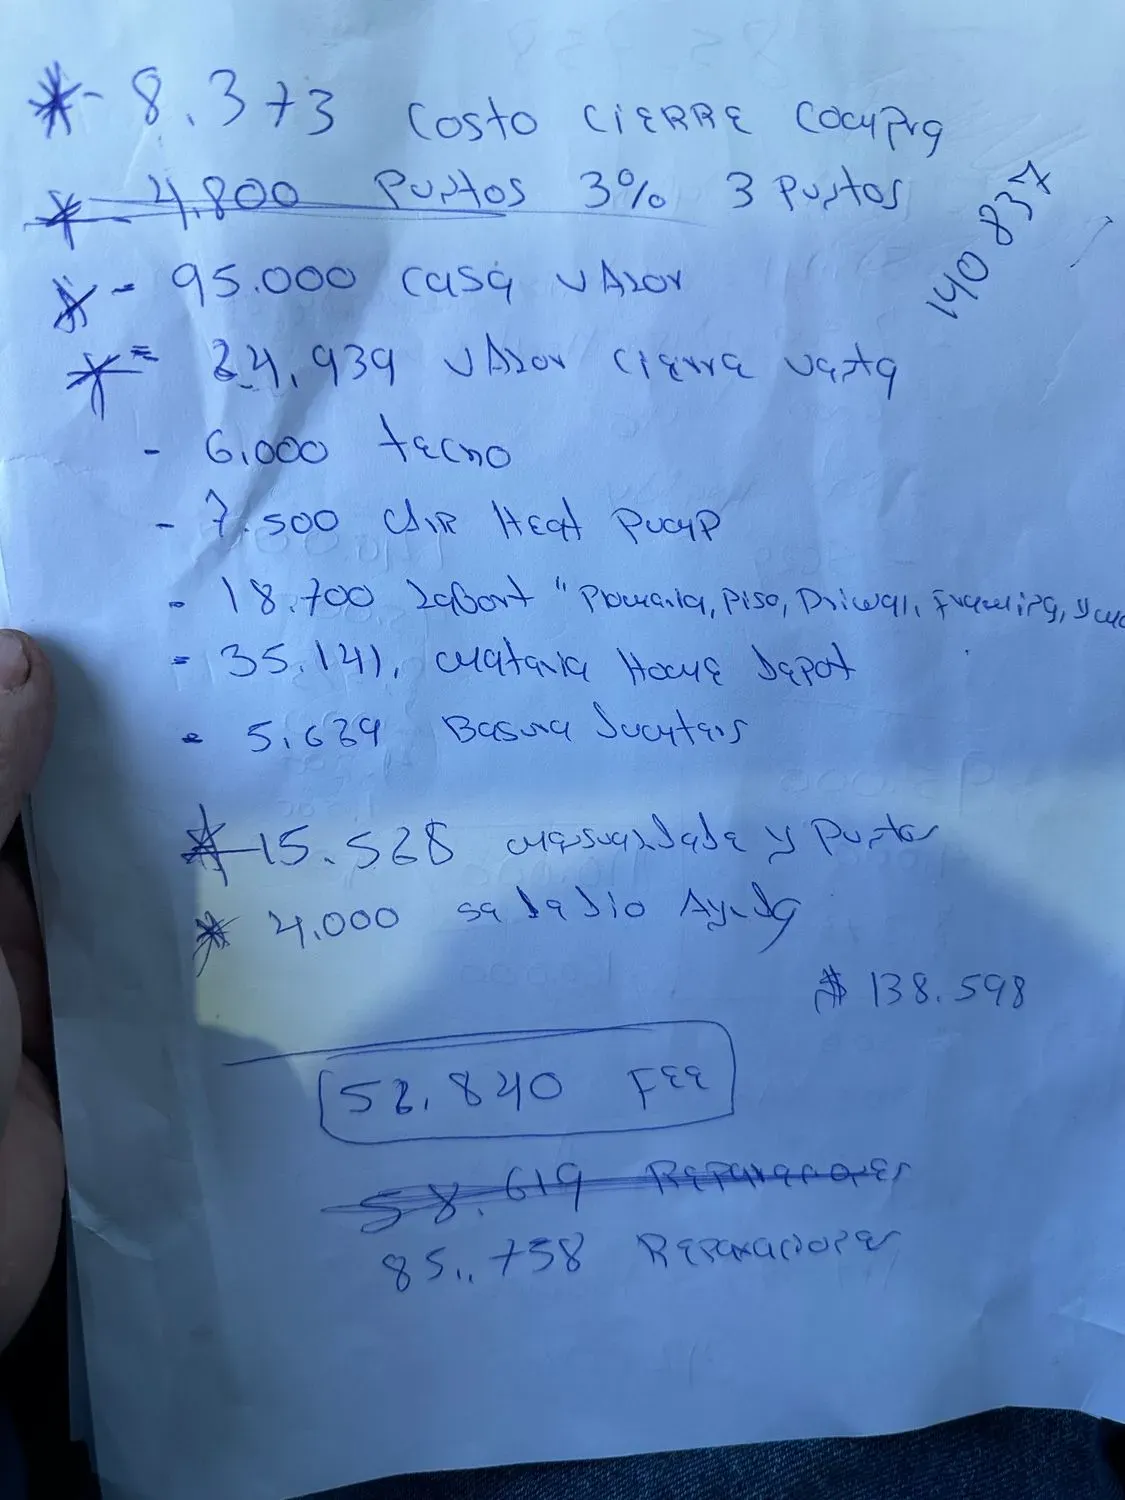 *- 8.373 Costo CIERRE Compra
*- 4.800 Puntos 3% 3 Puntos
*- 95.000 casa vAlor
*= 24.939 vAlor cierre venta
- 6.000 techo
- 7.500 Air Heat Pump
- 18.700 Labort "Plomeria, Piso, Driwal, Framing, y
- 35.141. materia Home Depot
- 5.629 Basura Dumters
* 15.528 mensualidade y Puntos
* 4.000 se le dio Ayuda
$ 138.598
52.840 FEE
58.619 Reparaciones
85..758 Reparaciones
140 837